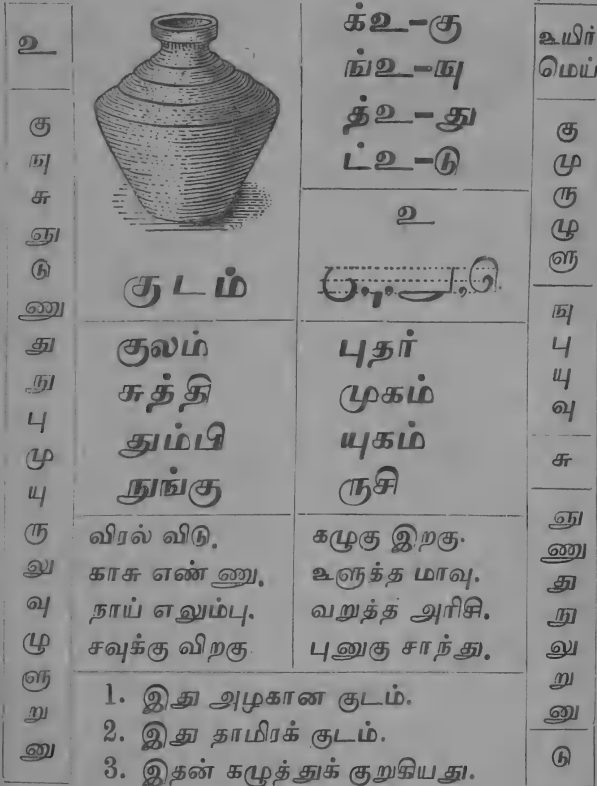 உ
கு
ஙு
சு
ஞு
டு
ணு
து
நு
பு
மு
யு
ரு
லு
வு
ழு
ளு
று
னு
குடம்
க்உ-கு
ங்உ-ஙு
த்உ-து
ட்உ-டு
உ
குலம்
சுத்தி
தும்பி
நுங்கு
புதர்
முகம்
யுகம்
ருசி
விரல் விடு.
காசு எண் ணு.
நாய் எலும்பு.
சவுக்கு விறகு
கழுகு இறகு.
உளுத்த மாவு.
வறுத்த அரிசி.
புனுகு சாந்து.
1. இது அழகான குடம்.
2. இது தாமிரக் குடம்.
3. இதன் கழுத்துக் குறுகியது.
உயிர்
மெய்
கு
மு
ரு
ழு
ளு
ஙு
பு
யு
வு
சு
ஞு
ணு
து
நு
லு
று
னு
டு